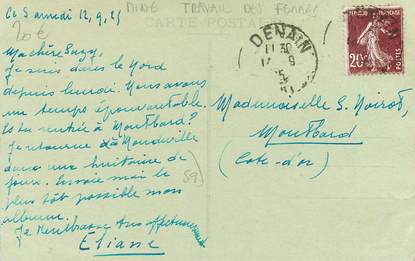 Ce Samedi 12.9.25
20€
MINE TRAVAIL DES FEMMES
CARTE POSTALE
DENAIN
20c
Ma chère Suzy,
Je suis dans le Nord
depuis lundi. Nous avons
un temps épouvantable.
Es tu rentrée à Montbard?
Je retourne à Mondeville
dans une huitaine de
jours. Envoie moi le
plus tôt possible mon
album.
Je t'embrasse très affectueusement
Éliane
59)
Mademoiselle S. Noirot,
Montbard
(Côte-d'or)